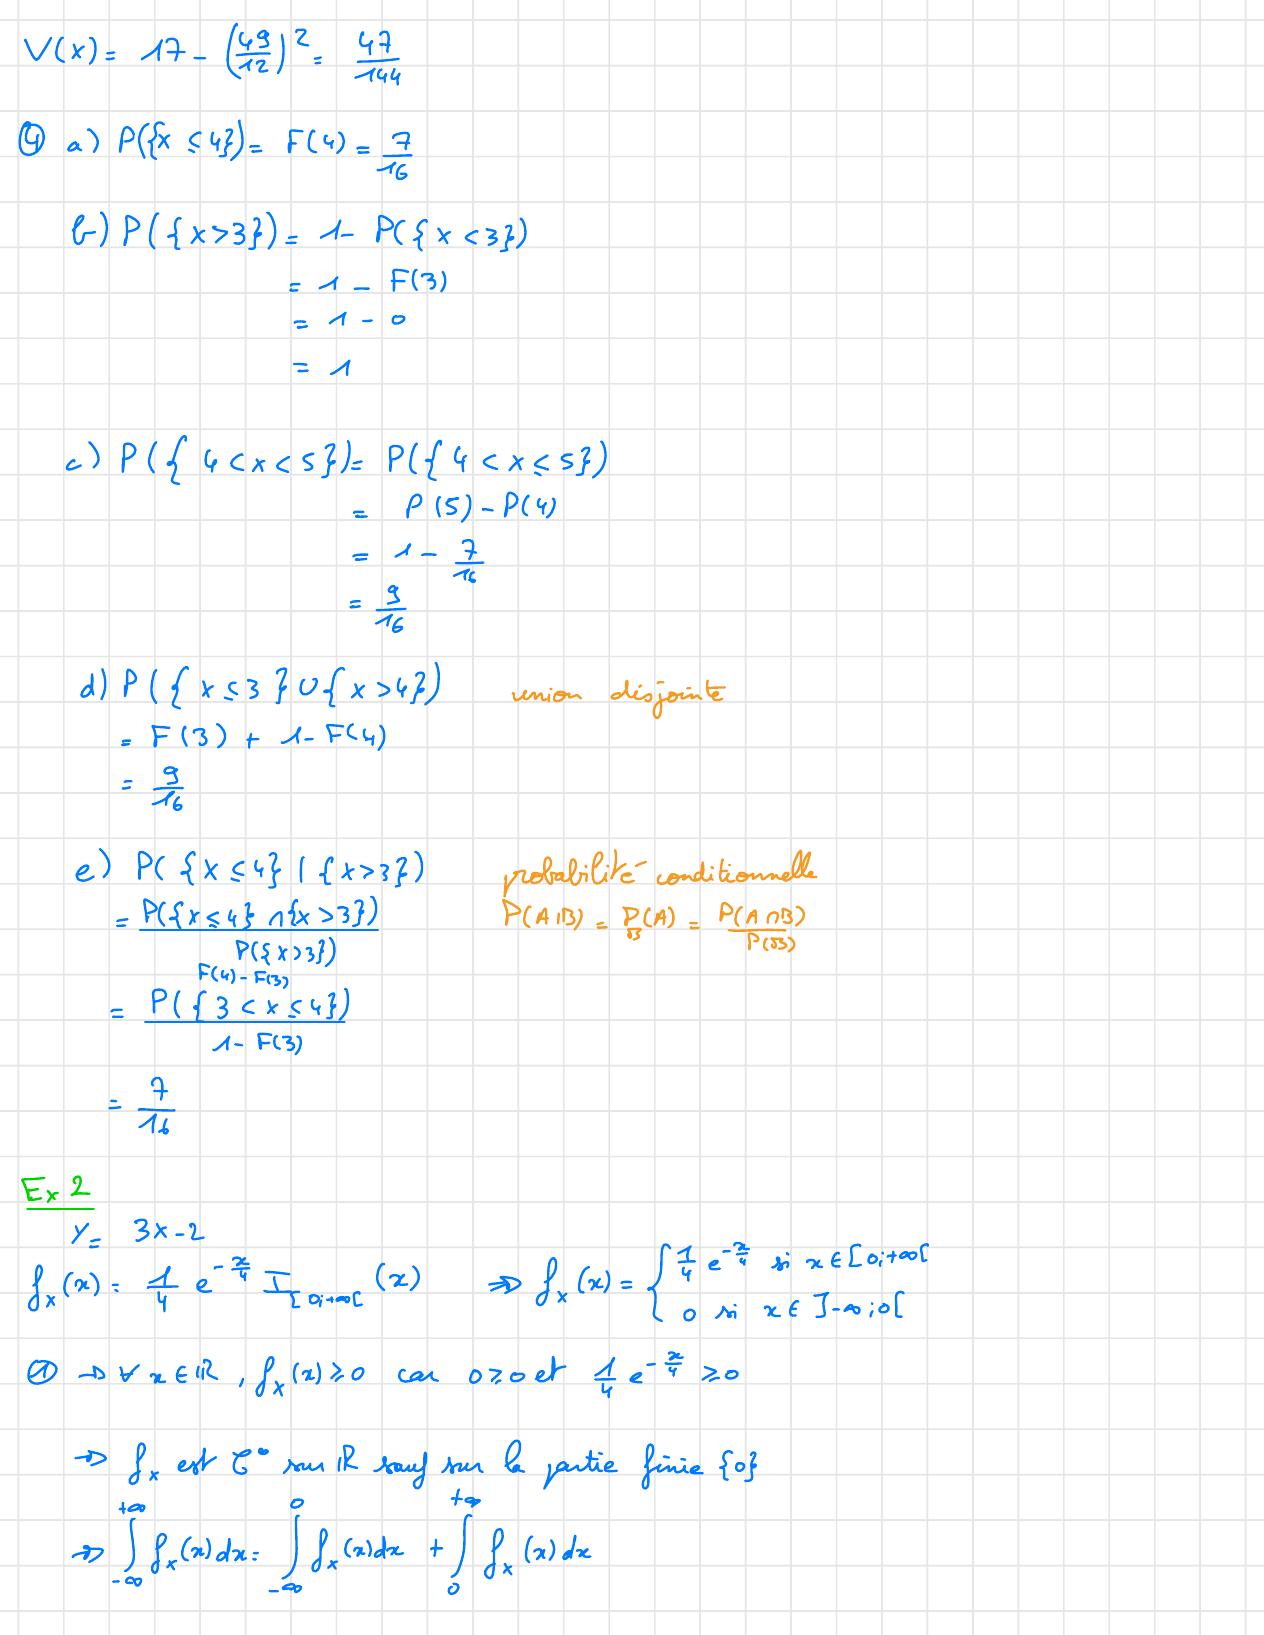 V(x) = 17 - (49/12)² = 47/144
④ a) P({x ≤ 4}) = F(4) = 7/16
b) P({x > 3}) = 1 - P({x < 3})
= 1 - F(3)
= 1 - 0
= 1
c) P({4 < x < 5}) = P({4 < x ≤ 5})
= P(5) - P(4)
= 1 - 7/16
= 9/16
d) P({x ≤ 3} ∪ {x > 4}) union disjointe
= F(3) + 1 - F(4)
= 9/16
e) P({x ≤ 4} | {x > 3}) probabilité conditionnelle
= P({x ≤ 4} ∩ {x > 3}) / P({x > 3}) P(A|B) = P_B(A) = P(A ∩ B) / P(B)
F(4) - F(3)
= P({3 < x ≤ 4}) / 1 - F(3)
= 7/16
Ex 2
Y = 3x - 2
f_x(x) = 1/4 e^(-x/4) I_[0;+∞[ (x) ⇒ f_x(x) = { 1/4 e^(-x/4) si x ∈ [0;+∞[
0 si x ∈ ]-∞;0[
① → ∀ x ∈ ℝ, f_x(x) ≥ 0 car 0 ≥ 0 et 1/4 e^(-x/4) ≥ 0
→ f_x est C° sur ℝ sauf sur la partie finie {0}
→ ∫_{-∞}^{+∞} f_x(x) dx = ∫_{-∞}^{0} f_x(x) dx + ∫_{0}^{+∞} f_x(x) dx